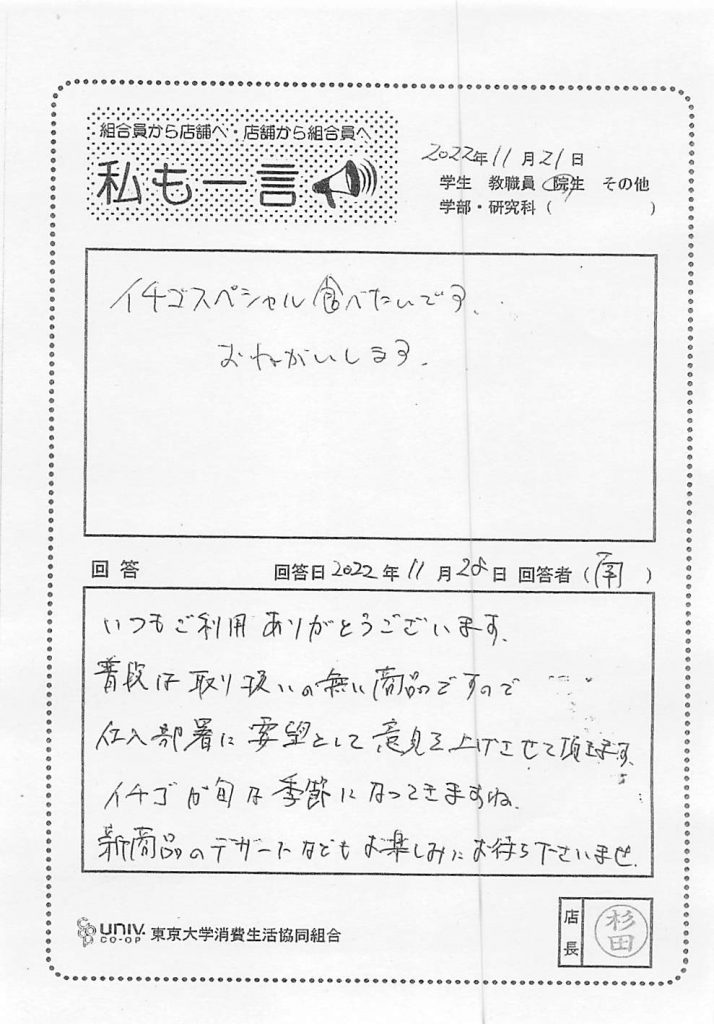 組合員から店舗へ・店舗から組合員へ
私も一言
2022年11月21日
学生 教職員 院生 その他
学部・研究科（ ）
イチゴスペシャル食べたいです。
おねがいします。
回答 回答日2022年11月28日 回答者（南）
いつもご利用ありがとうございます。
普段は取り扱いの無い商品ですので
仕入部署に要望として意見を上げさせて頂きます。
イチゴが旬な季節になってきますね。
新商品のデザートなどもお楽しみにお待ち下さいませ。
UNIV. CO-OP 東京大学消費生活協同組合
店長 杉田